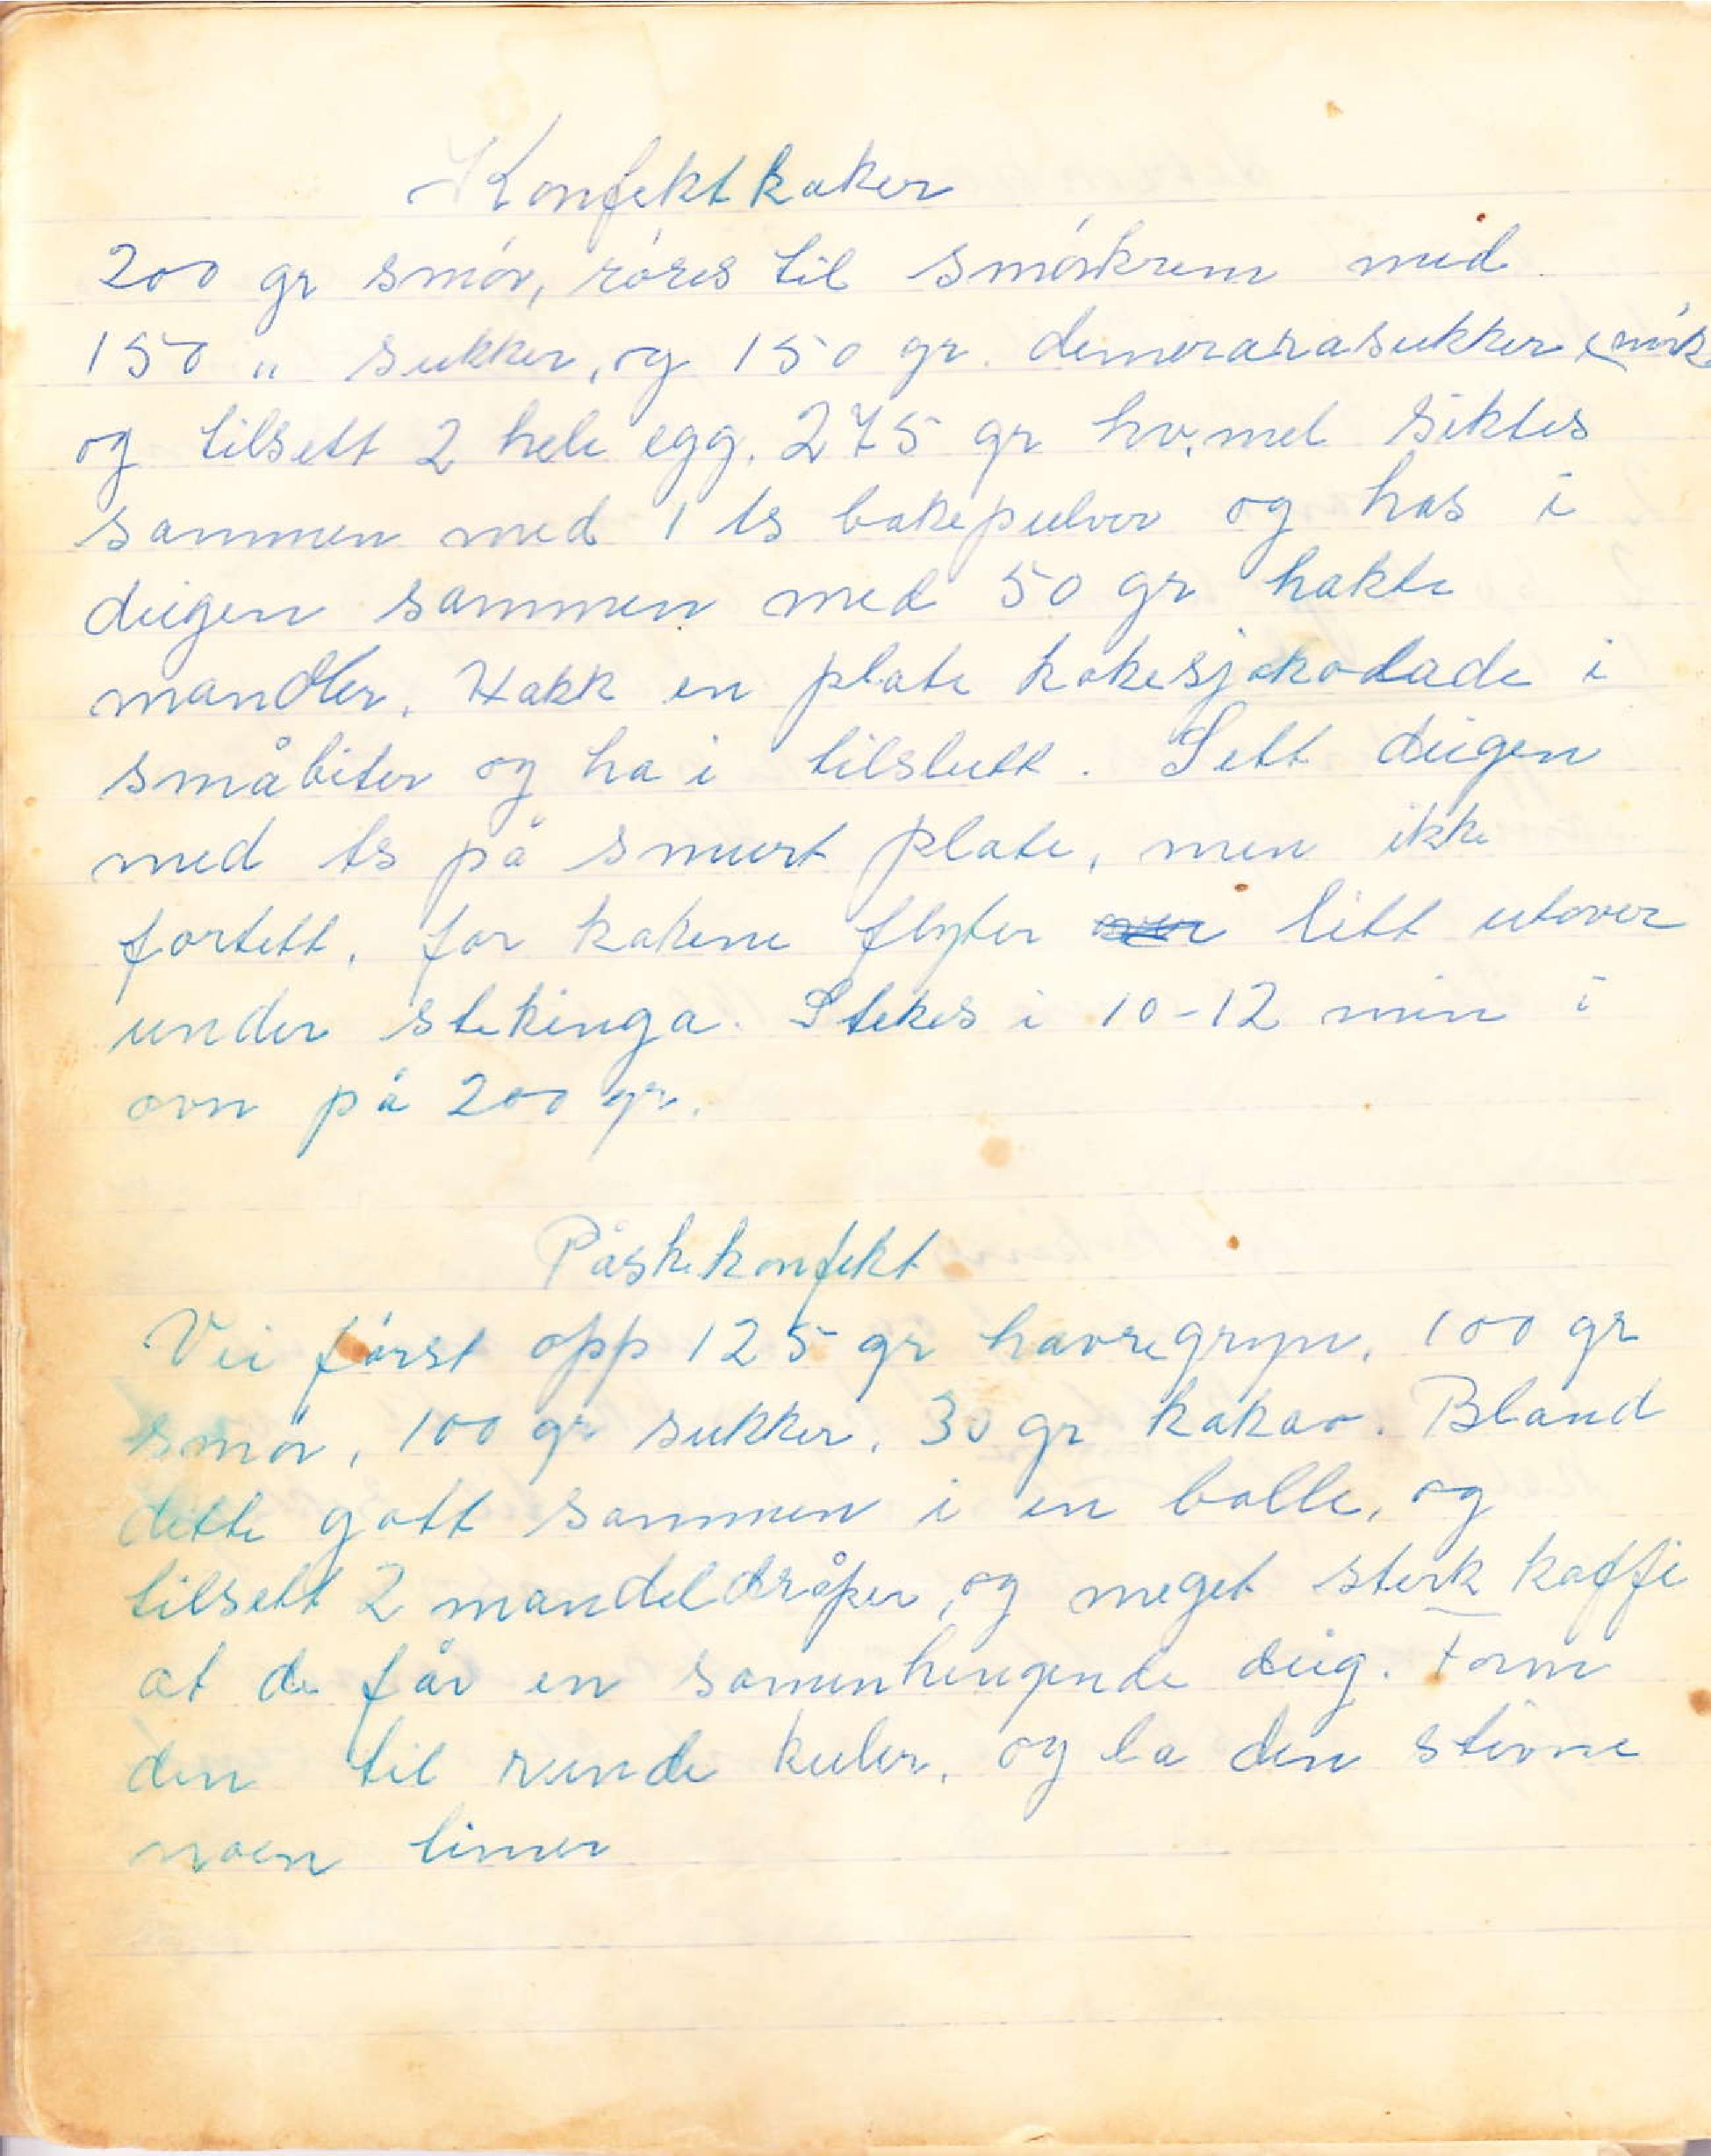 Konfektkaker
200 gr smór, róres til smórkrem med
150 " sukker, og 150 gr. demerarasukker (mørk
og tilsett 2 hele egg. 275 gr hv.mel siktes
sammen med 1 ts bakepulver og has i
deigen sammen med 50 gr hakte
mandler. Hakk en plate kokesjokolade i
småbiter og ha i tilslutt. Sett deigen
med ts på smurt plate, men ikke
fortett, for kakene flyter litt utover
under stekinga. Stekes i 10-12 min i
ovn på 200 gr.
Påskekonfekt
Vei fórst opp 125 gr havregryn, 100 gr
smór, 100 gr sukker, 30 gr kakao. Bland
dette gott sammen i en bolle, og
tilsett 2 mandeldråper, og meget sterk kaffe
at de får en samenhengende deig. Form
den til runde kuler, og la den stivne
noen timer